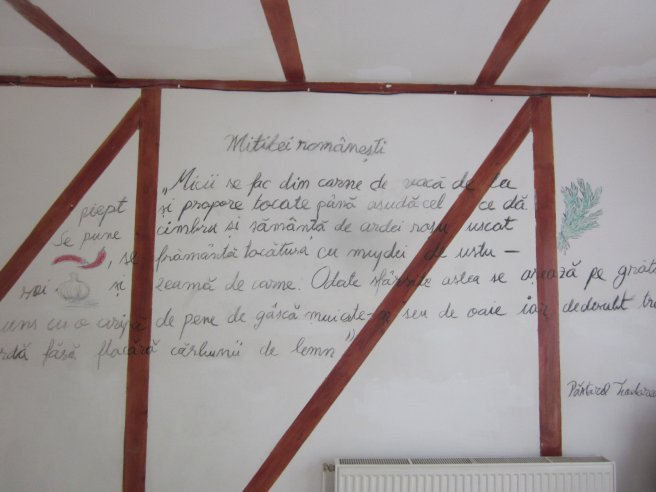 Mitilei românești
„Micii se fac din carne de vacă de la
piept și propore tocate până asudă cel ce dă
Se pune cimbru și sămânță de ardei roșu uscat
, se frământă tocătura cu mujdei de ustu–
roi și zeamă de carne. Odate sfârșite astea se așează pe grăta
uns cu o aripă de pene de gâscă muiate-n seu de oaie iar dedesubt
ardă fără flacără cărbunii de lemn”
Păstorel